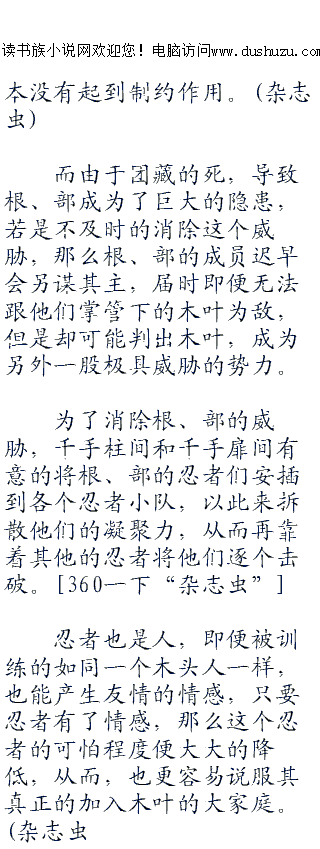 读书族小说网欢迎您！电脑访问www.dushuzu.com
本没有起到制约作用。(杂志
虫)
而由于团藏的死，导致
根、部成为了巨大的隐患，
若是不及时的消除这个威
胁，那么根、部的成员迟早
会另谋其主，届时即便无法
跟他们掌管下的木叶为敌，
但是却可能判出木叶，成为
另外一股极具威胁的势力。
为了消除根、部的威
胁，千手柱间和千手扉间有
意的将根、部的忍者们安插
到各个忍者小队，以此来拆
散他们的凝聚力，从而再靠
着其他的忍者将他们逐个击
破。[360一下“杂志虫”]
忍者也是人，即便被训
练的如同一个木头人一样，
也能产生友情的情感，只要
忍者有了情感，那么这个忍
者的可怕程度便大大的降
低，从而，也更容易说服其
真正的加入木叶的大家庭。
(杂志虫